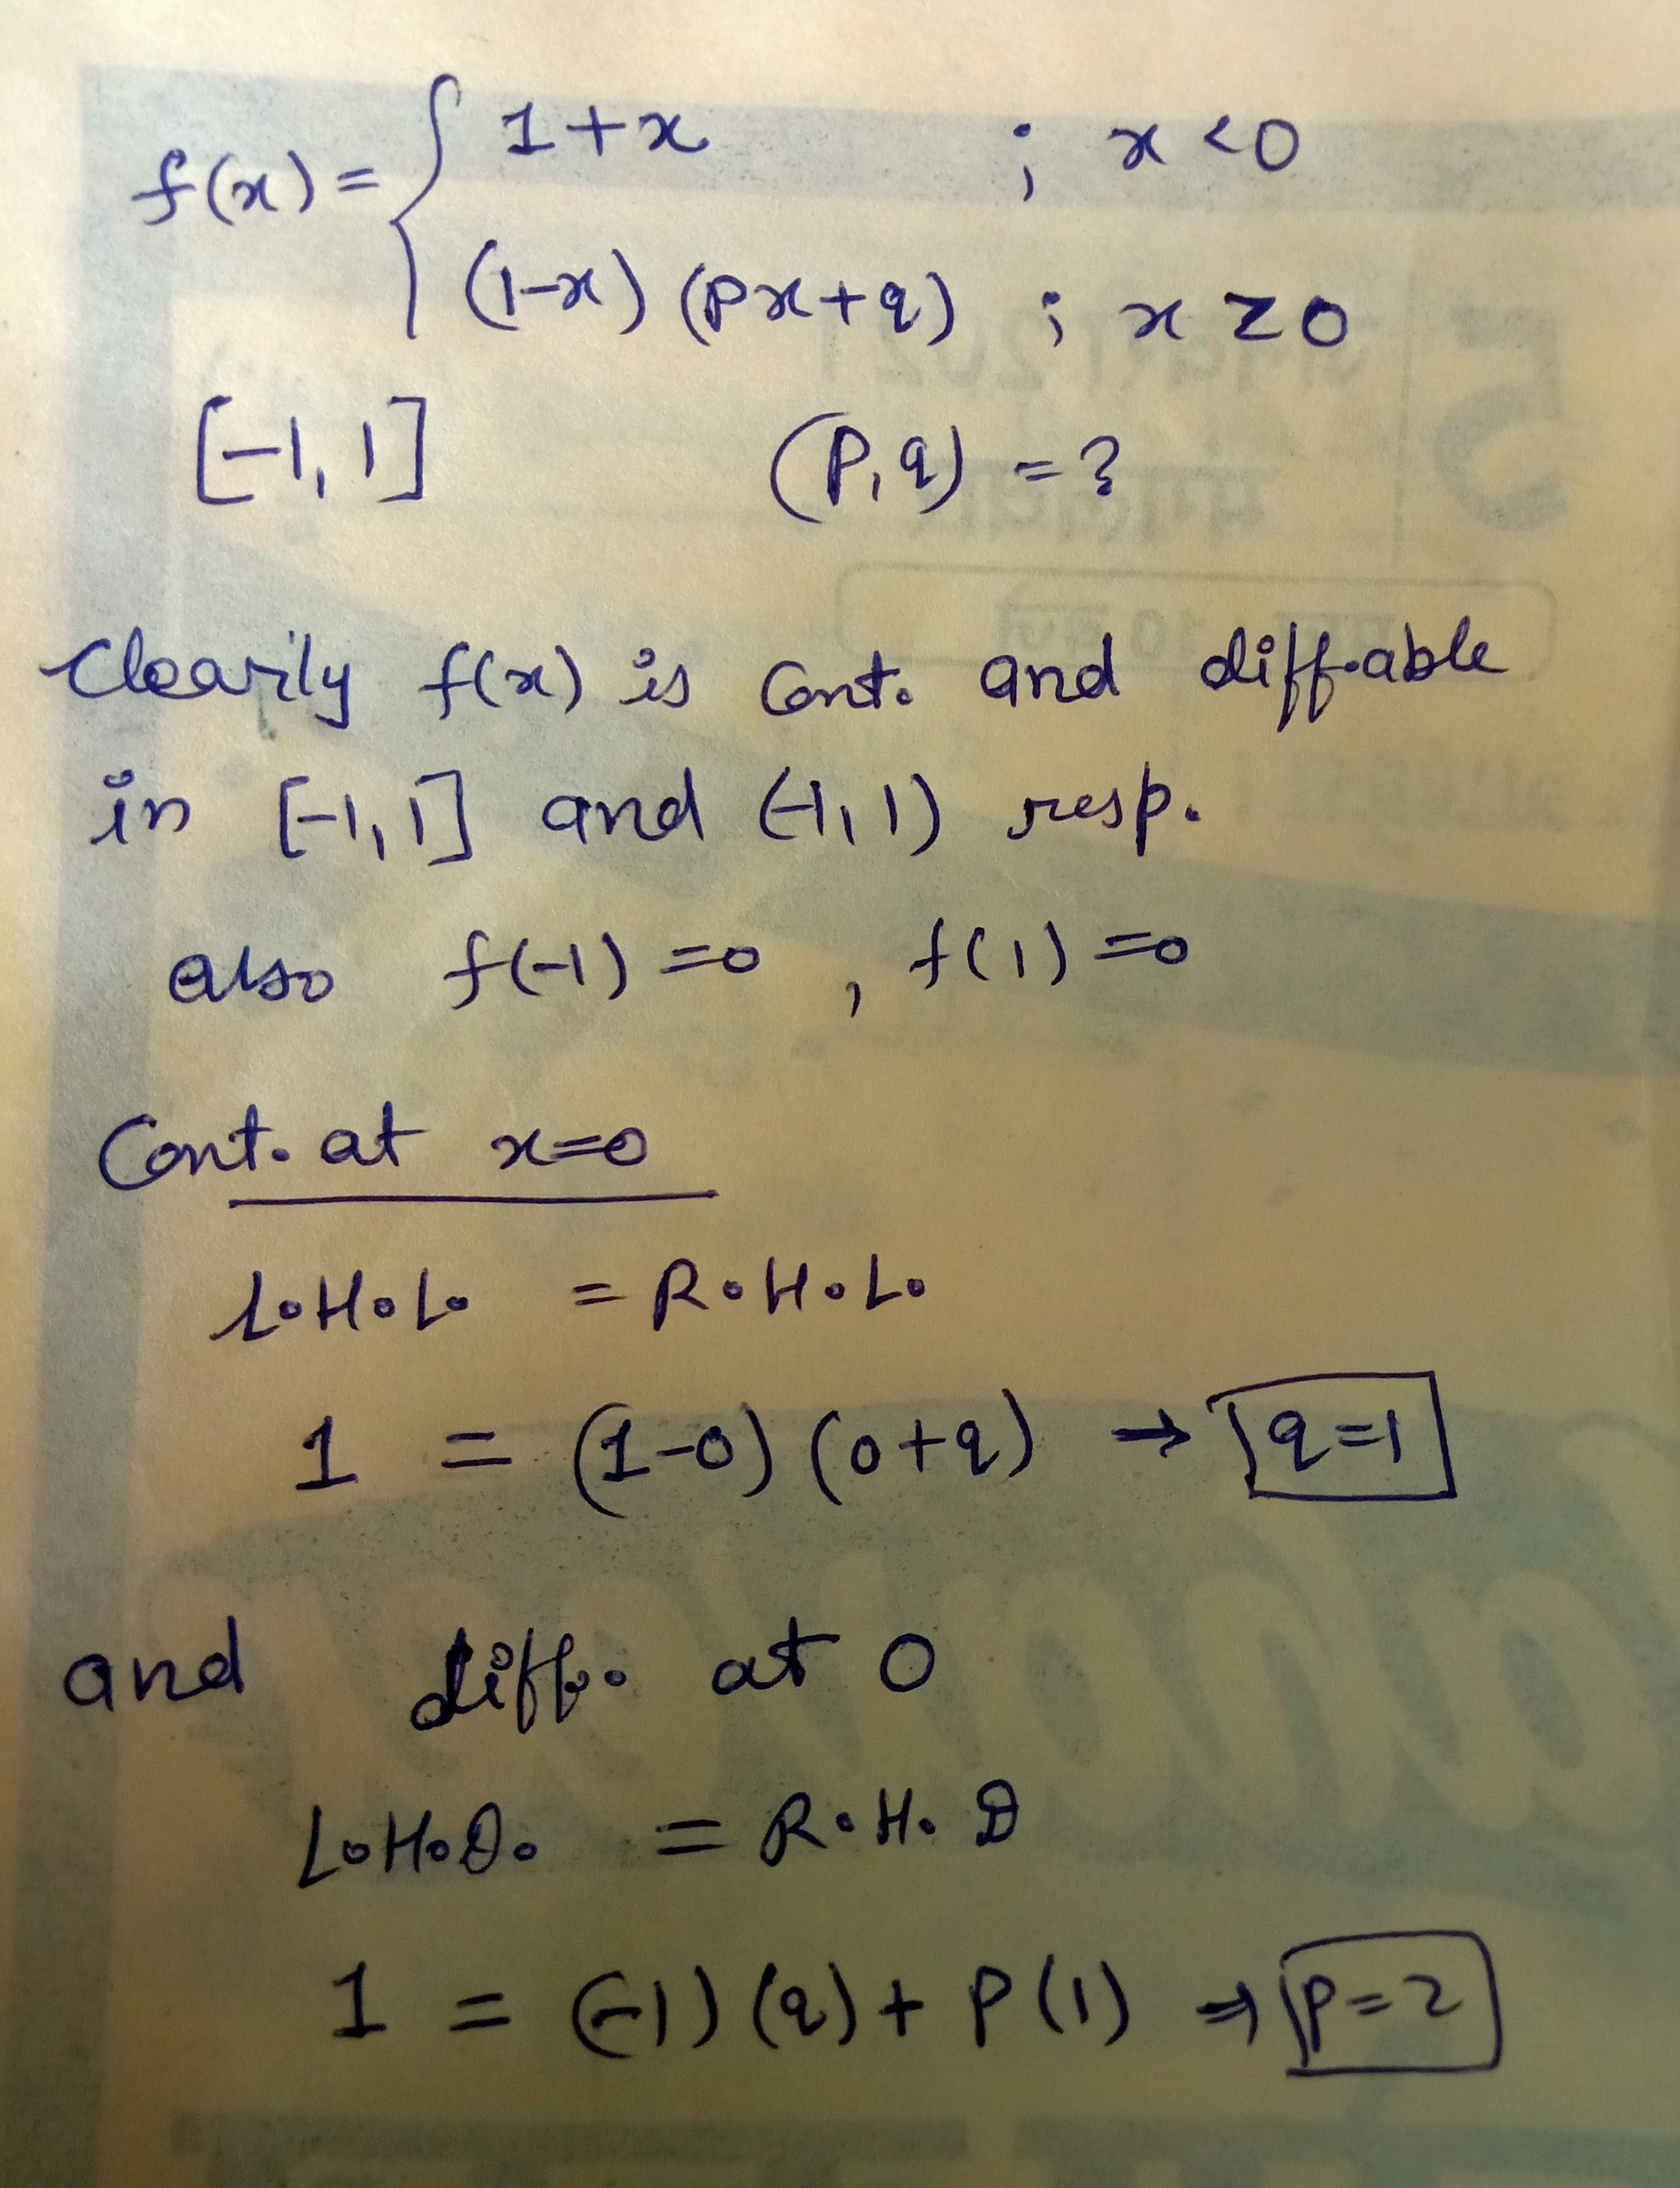 f(x) = { 1+x ; x < 0
(1-x) (px+q) ; x ≥ 0
[-1, 1] (P, q) = ?
Clearily f(x) is Cont. and diff.able
in [-1, 1] and (-1, 1) resp.
also f(-1) = 0 , f(1) = 0
Cont. at x=0
L.H.L. = R.H.L.
1 = (1-0) (0+q) → q=1
and diff. at 0
L.H.D. = R.H.D
1 = (-1) (q) + P(1) ⇒ p=2